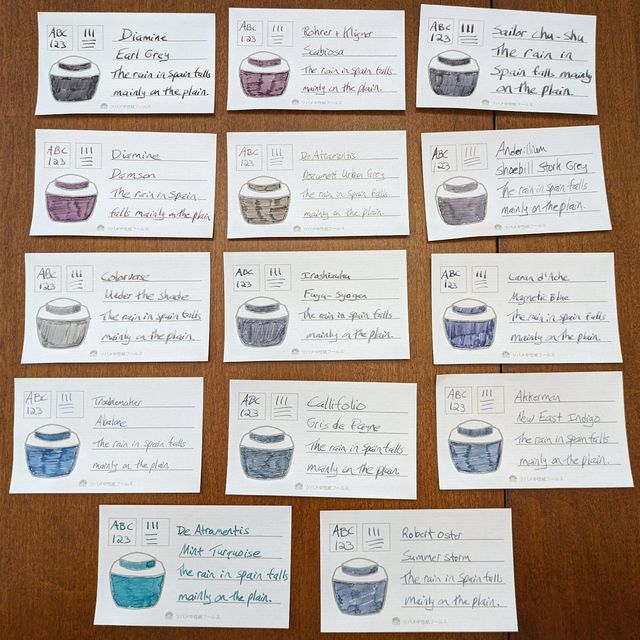 ABC
123
Diamine
Earl Grey
The rain in Spain falls
mainly on the plain.
ツバメ中性紙フールス
ABC
123
Rohrer + Klijner
Scabiosa
The rain in Spain falls
mainly on the plain.
ツバメ中性紙フールス
ABC
123
Sailor chu-shu
The rain in
Spain falls mainly
on the plain.
ツバメ中性紙フールス
ABC
123
Diamine
Damson
The rain in Spain
falls mainly on the plain
ツバメ中性紙フールス
ABC
123
De Atramentis
Document Urban Grey
The rain in Spain falls
mainly on the plain.
ツバメ中性紙フールス
ABC
123
Anderillium
Shoebill Stork Grey
The rain in Spain falls
mainly on the plain.
ツバメ中性紙フールス
ABC
123
Colorverse
Under the Shade
The rain in Spain falls
mainly on the plain.
ツバメ中性紙フールス
ABC
123
Iroshizuku
Fuyu-Syogun
The rain in Spain falls
mainly on the plain.
ツバメ中性紙フールス
ABC
123
Caran d'Ache
Magnetic Blue
The rain in Spain falls
mainly on the plain.
ツバメ中性紙フールス
ABC
123
Troublemaker
Abalone
The rain in Spain falls
mainly on the plain.
ツバメ中性紙フールス
ABC
123
Callifolio
Gris de Payne
The rain in Spain falls
mainly on the plain.
ツバメ中性紙フールス
ABC
123
Akkerman
New East Indigo
The rain in Spain falls
mainly on the plain.
ツバメ中性紙フールス
ABC
123
De Atramentis
Mint Turquoise
The rain in Spain falls
mainly on the plain.
ツバメ中性紙フールス
ABC
123
Robert Oster
Summer Storm
The rain in Spain falls
mainly on the plain.
ツバメ中性紙フールス